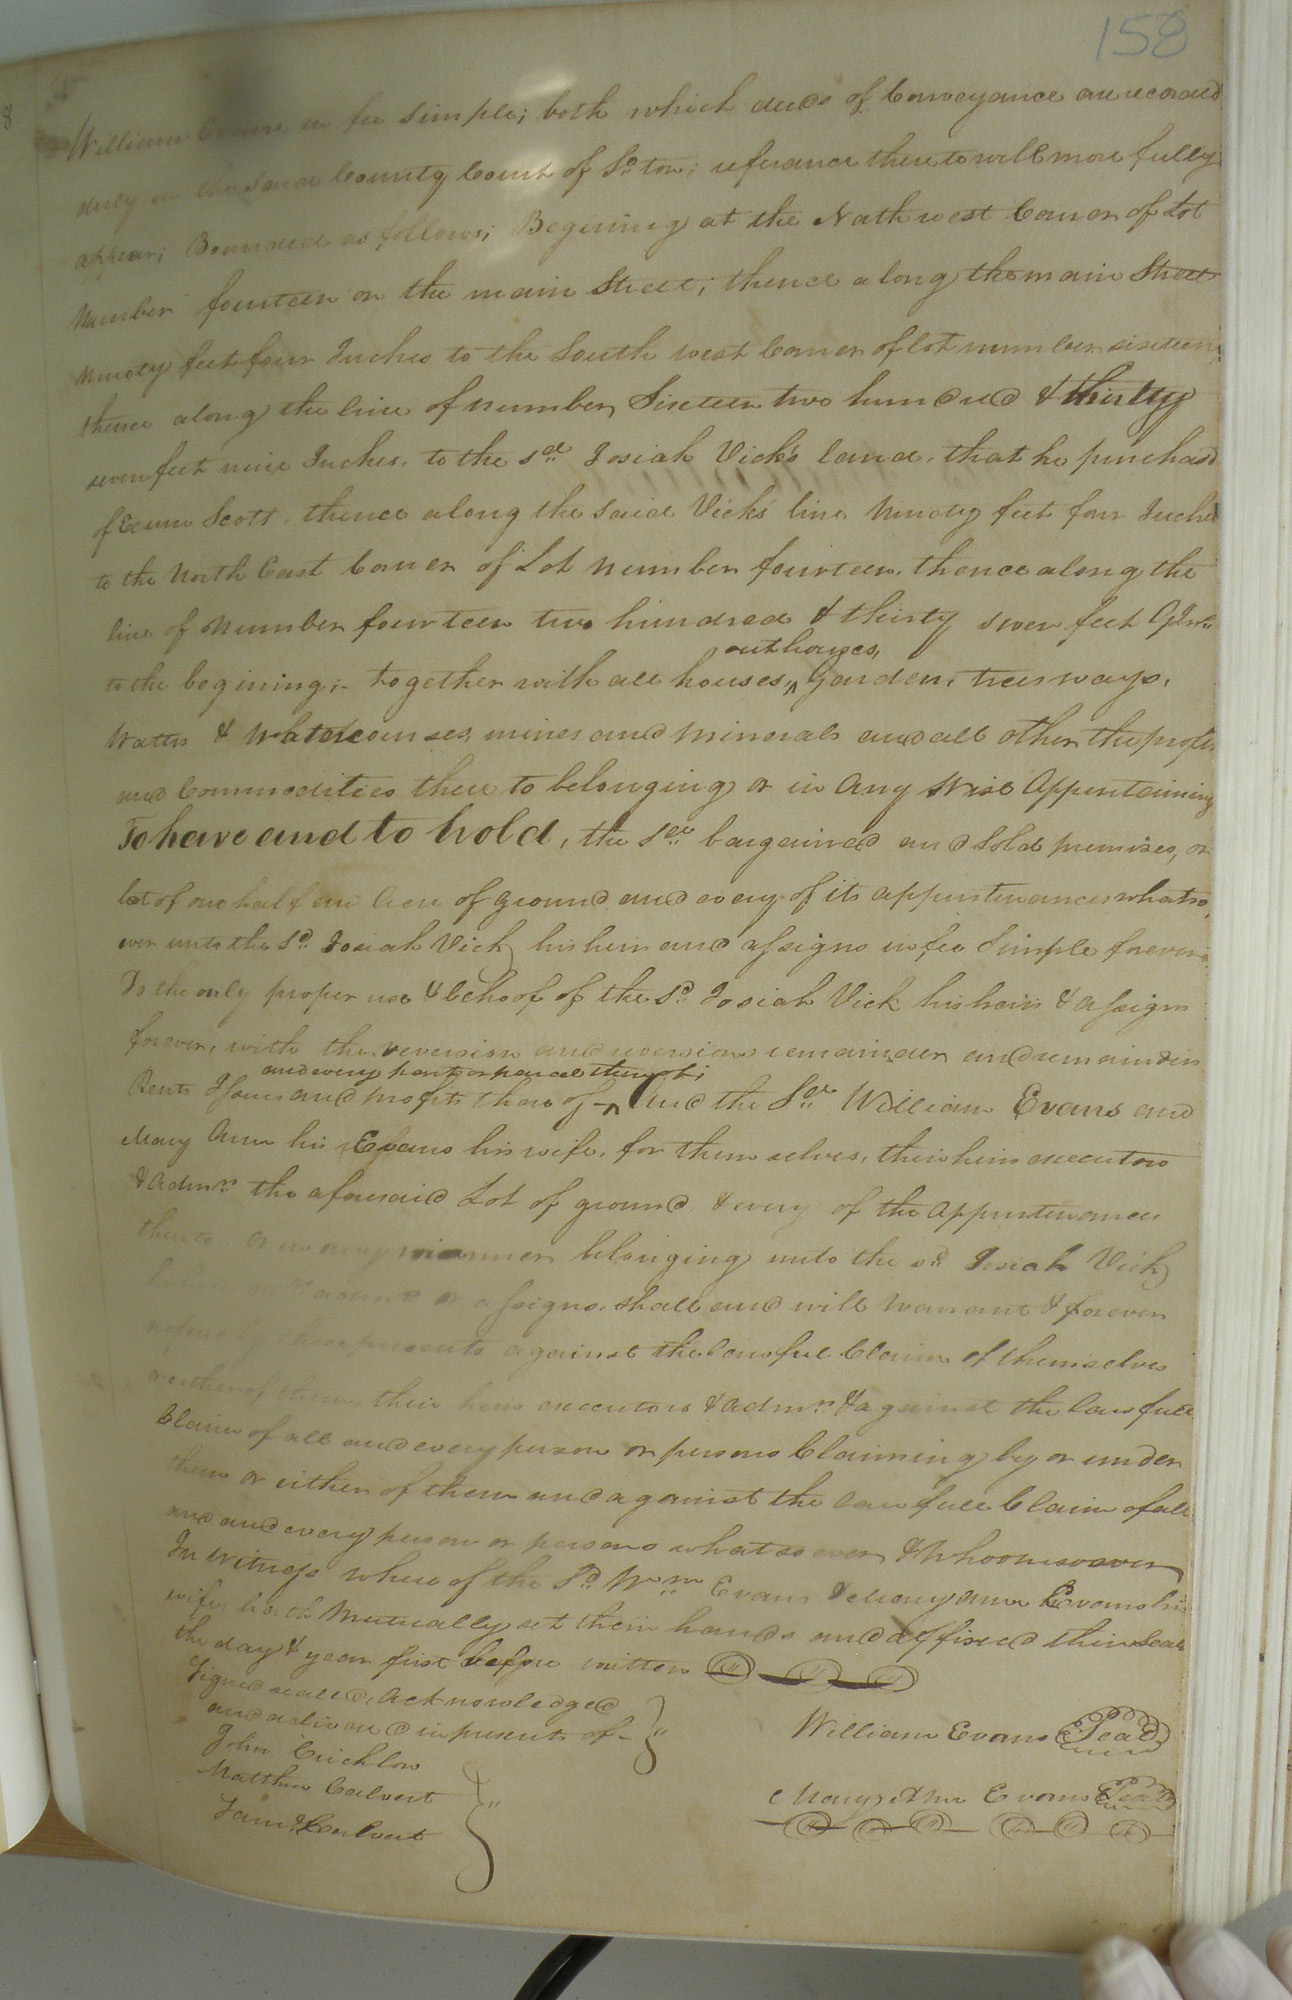 158
8
William Evans, in fee simple; both which deeds of Conveyance are recorded
duly in the said County Court of So.ton; referance thereto will more fully
appear; Bounded as follows; Begining at the Nathwest Corner of Lot
Number fourteen on the main Street; thence along the main Street
Ninety feet four Inches to the South west Corner of lot number sixteen,
thence along the line of number, Sixteen two hundred & thirty
seven feet nine Inches, to the sd. Josiah Vick's land, that he purchasd
of Scott, thence along the said Vicks line Ninety feet four Inches
to the North East Corner of Lot Number fourteen, thence along the
line of Number fourteen two hundred & thirty seven feet 9 Inc
outhouses,
to the begining;- together with all houses, ^ Garden, trees ways,
Waters & Watercourses, mines and Minerals and all other the profits
and Commodities thereto belonging or in Any Wise Appertaining
To have and to hold, the sd. bargained and Sold premises, or
lot of one half an Acre of ground and every of its appurtenances whatso,
ever unto the Sd. Josiah Vick, his heirs and assigns in fee Simple forever.
To the only proper use & behoof of the Sd. Josiah Vick his heirs & assigns
forever, with the reversion and reversions remainder and remainders
and every part or parcel thereof;
Rents Issues and Profits there of - ^ And the Sd. William Evans and
Mary Ann his Evans his wife, for themselves, their heirs executors
& Admrs. the aforesaid Lot of ground & every of the Appurtenances
thereto or in any manner belonging unto the sd. Josiah Vick,
or assigns, shall and will Warrant & forever
defend by these presents against the lawful Claim of themselves
or either of them, their heirs executors & Admrs. & against the lawfull
Claim of all and every person or persons Claiming by or under
them or either of them and against the lawfull Claim of all
and and every person or persons whatsoever & Whoomsoever
In Witness where of the Sd. Wm. Evans & Mary Ann Evans his
wife hath Mutually set their hands and affixed their Seals
the day & year first before written
Signed sealed, Acknowledged
and delivered in presents of -
John Crichlow
Matthew Calvert
Calvert
William Evans Seal
Mary Ann Evans Seal